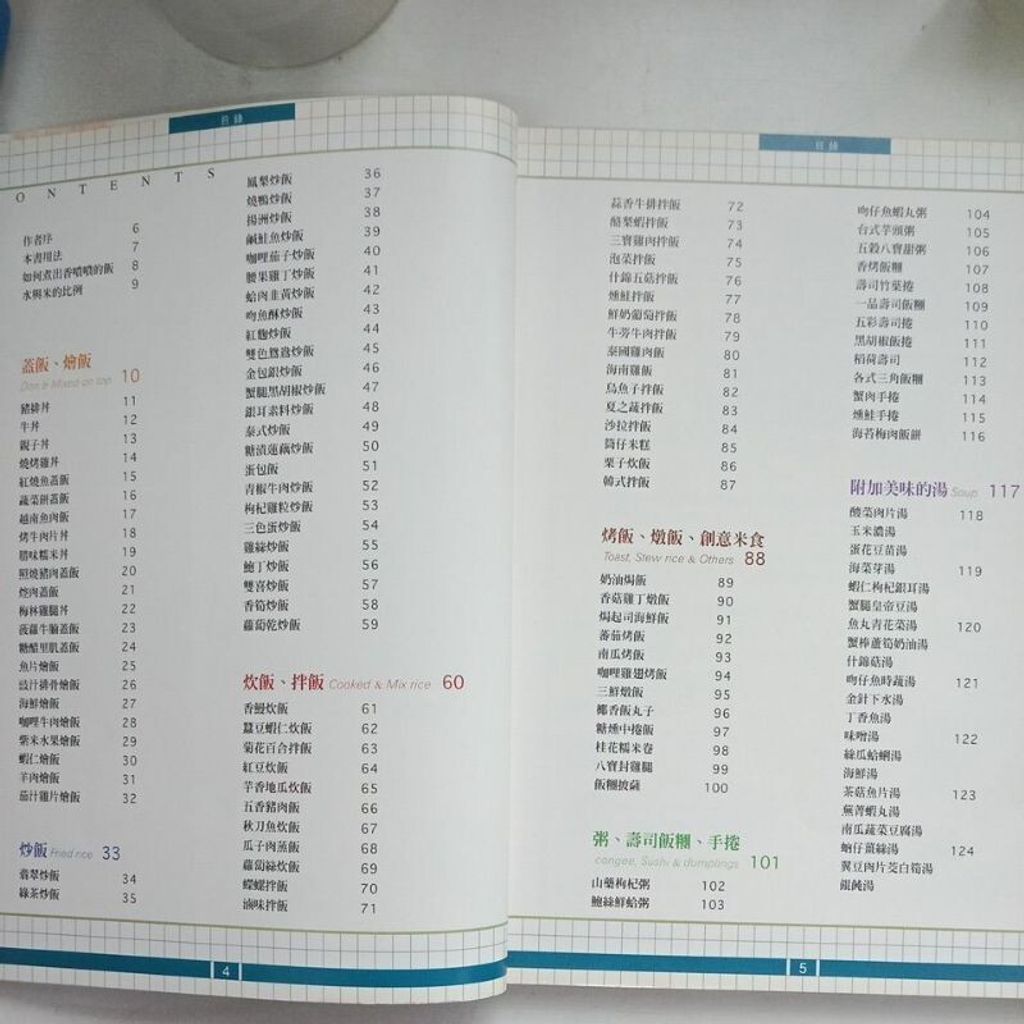 目錄
ONTENTS
作者序 6
本書用法 7
如何煮出香噴噴的飯 8
水與米的比例 9
蓋飯、燴飯
Don & Mixed on top 10
豬排丼 11
牛丼 12
親子丼 13
燒烤雞丼 14
紅燒魚蓋飯 15
蔬菜餅蓋飯 16
越南魚肉飯 17
烤牛肉片丼 18
腊味糯米丼 19
照燒豬肉蓋飯 20
焢肉蓋飯 21
梅林雞腿丼 22
菠蘿牛腩蓋飯 23
糖醋里肌蓋飯 24
魚片燴飯 25
豉汁排骨燴飯 26
海鮮燴飯 27
咖哩牛肉燴飯 28
紫米水果燴飯 29
蝦仁燴飯 30
羊肉燴飯 31
茄汁雞片燴飯 32
炒飯 Fried rice 33
翡翠炒飯 34
綠茶炒飯 35
鳳梨炒飯 36
燒鴨炒飯 37
揚洲炒飯 38
鹹鮭魚炒飯 39
咖哩茄子炒飯 40
腰果雞丁炒飯 41
蛤肉韭黃炒飯 42
吻魚酥炒飯 43
紅麴炒飯 44
雙色鴛鴦炒飯 45
金包銀炒飯 46
蟹腿黑胡椒炒飯 47
銀耳素料炒飯 48
泰式炒飯 49
糖漬蓮藕炒飯 50
蛋包飯 51
青椒牛肉炒飯 52
枸杞雞粒炒飯 53
三色蛋炒飯 54
雞絲炒飯 55
鮑丁炒飯 56
雙喜炒飯 57
香筍炒飯 58
蘿蔔乾炒飯 59
炊飯、拌飯 Cooked & Mix rice 60
香鰻炊飯 61
蠶豆蝦仁炊飯 62
菊花百合拌飯 63
紅豆炊飯 64
芋香地瓜炊飯 65
五香豬肉飯 66
秋刀魚炊飯 67
瓜子肉蒸飯 68
蘿蔔絲炊飯 69
蠑螺拌飯 70
滷味拌飯 71
4
目錄
蒜香牛排拌飯 72
酪梨蝦拌飯 73
三寶雞肉拌飯 74
泡菜拌飯 75
什錦五菇拌飯 76
燻鮭拌飯 77
鮮奶葡萄拌飯 78
牛蒡牛肉拌飯 79
泰國雞肉飯 80
海南雞飯 81
烏魚子拌飯 82
夏之蔬拌飯 83
沙拉拌飯 84
筒仔米糕 85
栗子炊飯 86
韓式拌飯 87
烤飯、燉飯、創意米食
Toast, Stew rice & Others 88
奶油焗飯 89
香菇雞丁燉飯 90
焗起司海鮮飯 91
蕃茄烤飯 92
南瓜烤飯 93
咖哩雞翅烤飯 94
三鮮燉飯 95
椰香飯丸子 96
糖燻中捲飯 97
桂花糯米卷 98
八寶封雞腿 99
飯糰披薩 100
粥、壽司飯糰、手捲
congee, Sushi & dumplings 101
山藥枸杞粥 102
鮑絲鮮蛤粥 103
吻仔魚蝦丸粥 104
台式芋頭粥 105
五穀八寶甜粥 106
香烤飯糰 107
壽司竹葉捲 108
一品壽司飯糰 109
五彩壽司捲 110
黑胡椒飯捲 111
稻荷壽司 112
各式三角飯糰 113
蟹肉手捲 114
燻鮭手捲 115
海苔梅肉飯餅 116
附加美味的湯 Soup 117
酸菜肉片湯 118
玉米濃湯
蛋花豆苗湯
海菜芽湯 119
蝦仁枸杞銀耳湯
蟹腿皇帝豆湯
魚丸青花菜湯 120
蟹棒蘆筍奶油湯
什錦菇湯
吻仔魚時蔬湯 121
金針下水湯
丁香魚湯
味噌湯 122
絲瓜蛤蜊湯
海鮮湯
茶菇魚片湯 123
蕪菁蝦丸湯
南瓜蔬菜豆腐湯
蚋仔薑絲湯 124
翼豆肉片茭白筍湯
餛飩湯
5